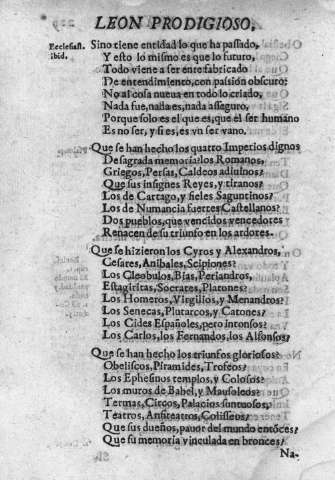 LEON PRODIGIOSO,
Ecclesiast.
ibid.
Sino tiene entidad lo que ha passado,
Y esto lo mismo es que lo futuro,
Todo viene a ser ente fabricado
De entendimiento, con passion obscuro:
No ai cosa nueua en todo lo criado,
Nada fue, nada es, nada asseguro,
Porque solo es el que es, que el ser humano
Es no ser, y si es, es vn ser vano.
Que se han hecho los quatro Imperios dignos
De sagrada memoria: los Romanos,
Griegos, Persas, Caldeos adiuinos?
Que sus insignes Reyes, y tiranos?
Los de Cartago, y fieles Saguntinos?
Los de Numancia fuertes Castellanos?
Dos pueblos, que vencidos vencedores
Renacen de su triunfo en los ardores.
Que se hizieron los Cyros y Alexandros,
Cesares, Anibales, Scipiones?
Los Cleobulos, Bias, Periandros,
Estagiritas, Socrates, Platones?
Los Homeros, Virgilios, y Menandros?
Los Senecas, Plutarcos, y Catones?
Los Cides Españoles, pero intonsos?
Los Carlos, los Fernandos, los Alfonsos?
Que se han hecho los triunfos gloriosos?
Obeliscos, Piramides, Trofeos?
Los Ephesinos templos, y Colosos?
Los muros de Babel, y Mausoleos?
Termas, Circos, Palacios suntuosos,
Teatros, Anfiteatros, Colisseos?
Que sus dueños, pauor del mundo entõces?
Que su memoria vinculada en bronces?
Na-